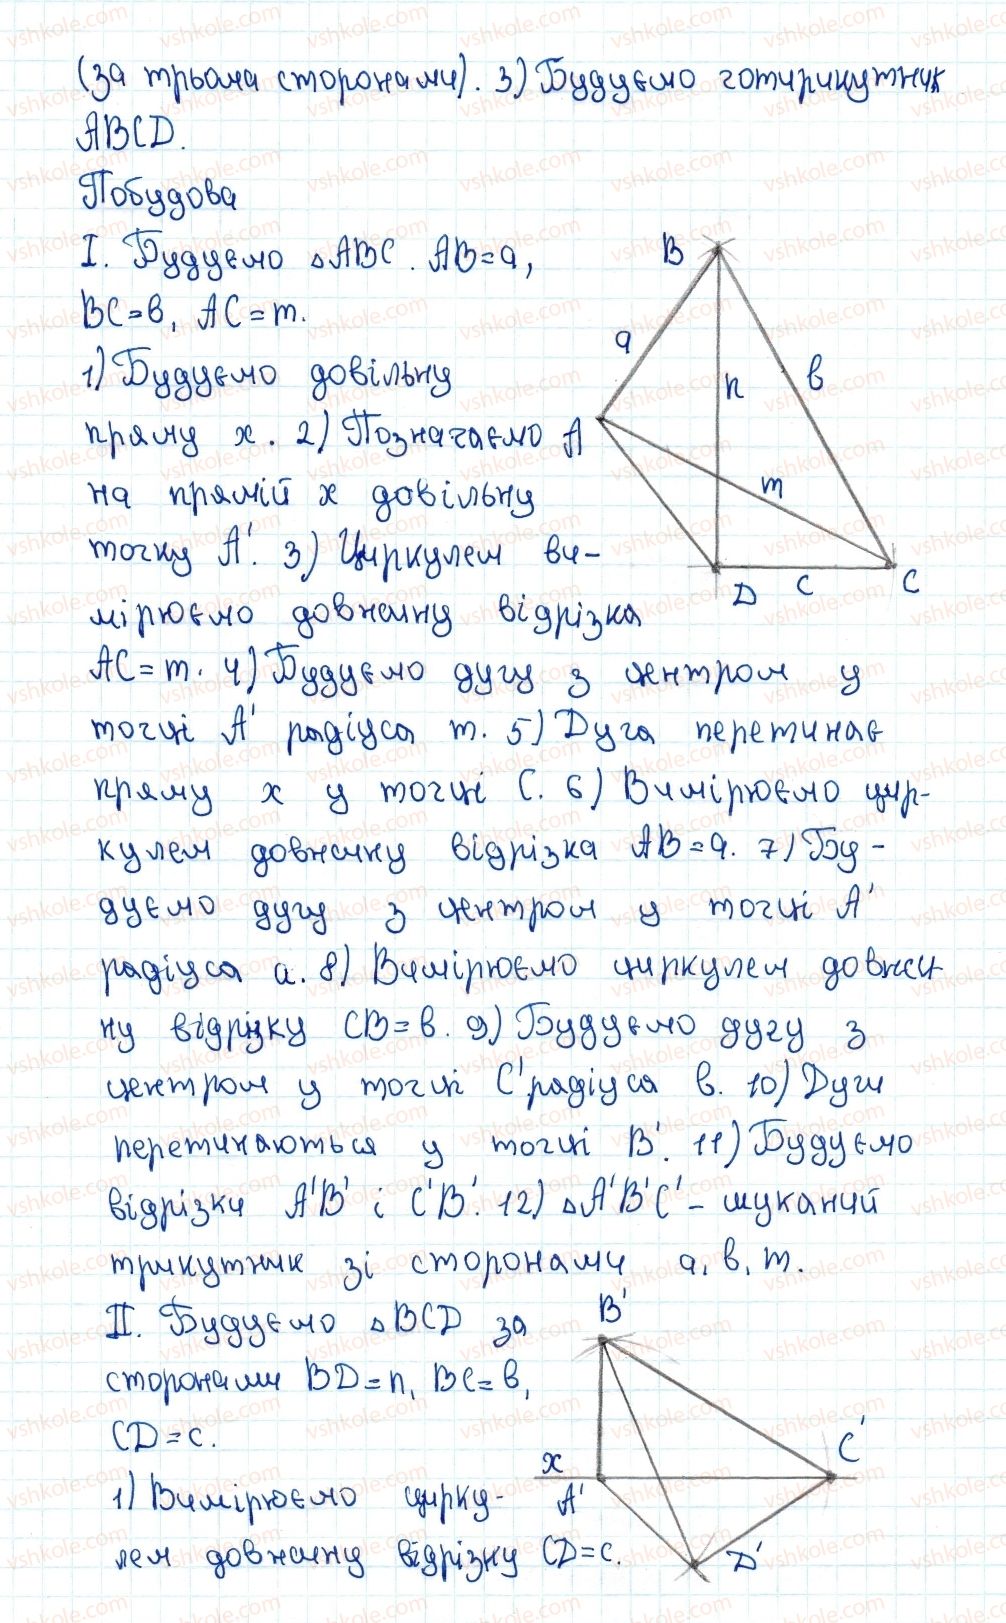 (за трьома сторонами). 3) Будуємо чотирикутник
ABCD.
Побудова
I. Будуємо △ABC. AB=a,
BC=в, AC=m.
1) Будуємо довільну
пряму x. 2) Позначаємо
на прямій x довільну
точку A'. 3) Циркулем ви-
мірюємо довжину відрізка
AC=m. 4) Будуємо дугу з центром у
точці A' радіуса m. 5) Дуга перетинає
пряму x у точці C. 6) Вимірюємо цир-
кулем довжину відрізка AB=a. 7) Бу-
дуємо дугу з центром у точці A'
радіуса a. 8) Вимірюємо циркулем довжи
ну відрізку CB=в. 9) Будуємо дугу з
центром у точці C' радіуса в. 10) Дуги
перетинаються у точці B'. 11) Будуємо
відрізки A'B' і C'B'. 12) △A'B'C' – шуканий
трикутник зі сторонами a, в, m.
II. Будуємо △BCD за
сторонами BD=n, BC=в,
CD=c.
1) Вимірюємо цирку-
лем довжину відрізку CD=c.
B
a
n
в
A
m
D
c
C
B'
x
A'
C'
D'